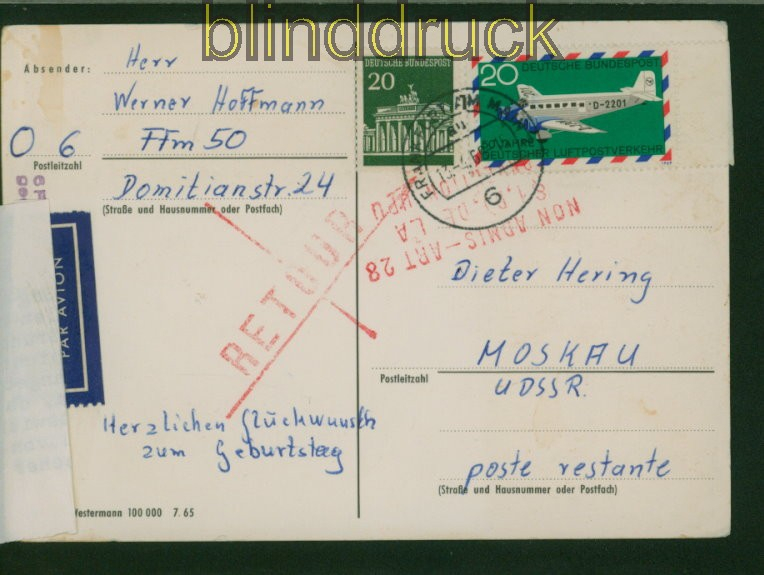 blinddruck
Absender:
Herr
Werner Hoffmann
06
Ffm 50
Postleitzahl
Domitianstr. 24
(Straße und Hausnummer oder Postfach)
DEUTSCHE BUNDESPOST
20
20
DEUTSCHE BUNDESPOST
D-2201
50 JAHRE
DEUTSCHER LUFTPOSTVERKEHR
6
NON ADMIS-ART 28
RETOUR
PAR AVION
Dieter Hering
MOSKAU
Postleitzahl
UDSSR.
Herzlichen Glückwunsch
zum Geburtstag
poste restante
(Straße und Hausnummer oder Postfach)
Westermann 100 000 7.65